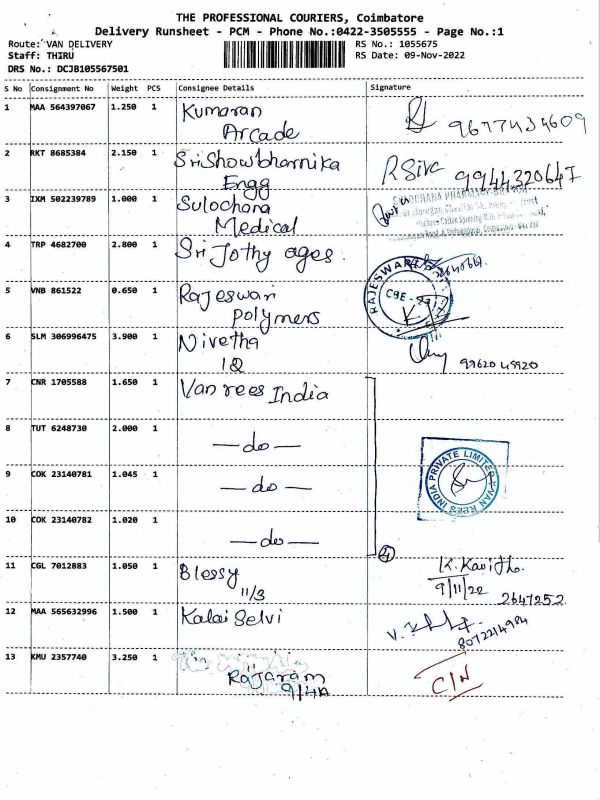 THE PROFESSIONAL COURIERS, Coimbatore
Delivery Runsheet - PCM - Phone No.:0422-3505555 - Page No.:1
Route: VAN DELIVERY RS No.: 1055675
Staff: THIRU RS Date: 09-Nov-2022
DRS No.: DCJB105567501
S No Consignment No Weight PCS Consignee Details Signature
1 MAA 564397067 1.250 1 Kumaran
Arcade
2 RKT 8685384 2.150 1 Sri Showbharnika R Siva 9944320647
Engg
3 IXM 502239789 1.000 1 Sulochana
Medical
4 TRP 4682700 2.800 1 Sri Jothy ages.
5 VNB 861522 0.650 1 Rajeswari
Polymers
RAJESWARI
CBE
6 SLM 306996475 3.900 1 Nivetha
99620 49920
7 CNR 1705588 1.650 1 Van rees India
8 TUT 6248730 2.000 1 —do—
9 COK 23140781 1.045 1 —do—
VAN REES INDIA PRIVATE LIMITED
10 COK 23140782 1.020 1 —do—
4
11 CGL 7012883 1.050 1 Blessy K. Kavitha
11/3 9/11/22
2647252
12 MAA 565632996 1.500 1 Kalai Selvi V.
8072214984
13 KMU 2357740 3.250 1
Rajaram C/N
9/4A